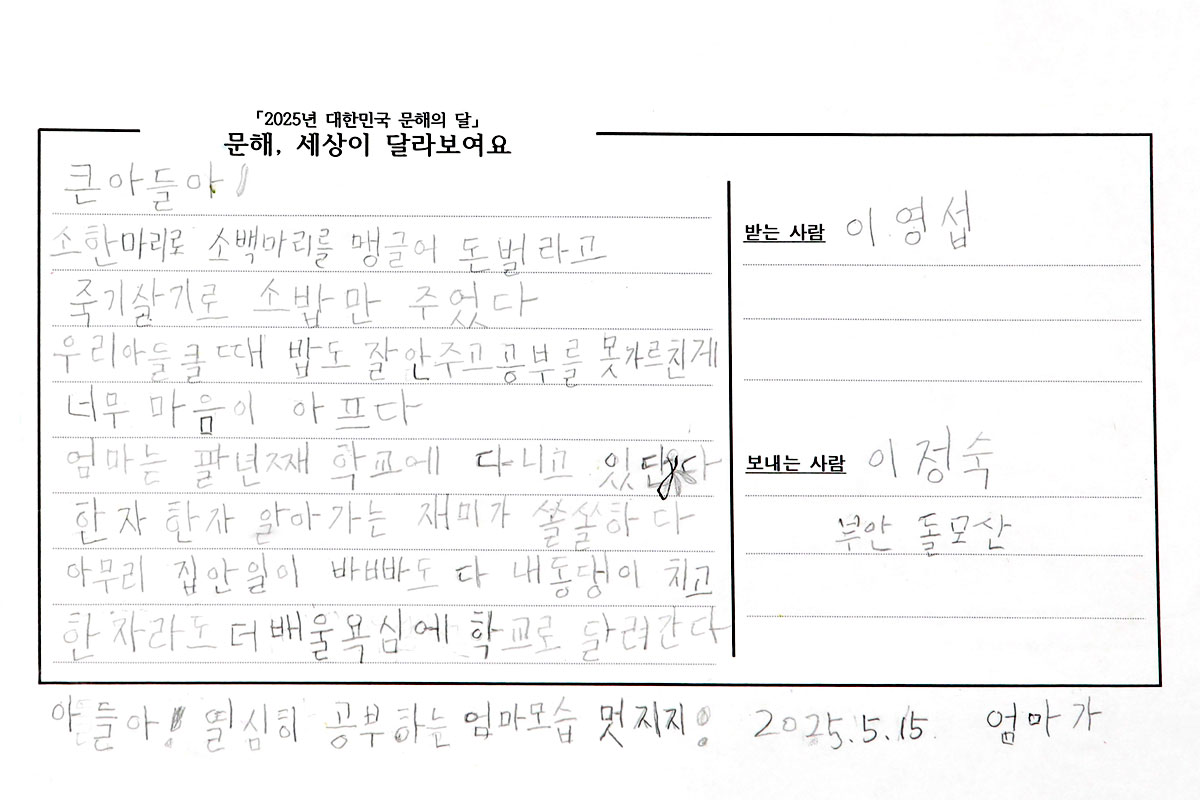 「2025년 대한민국 문해의 달」
문해, 세상이 달라보여요
큰아들아!
소한마리로 소백마리를 맹글어 돈벌라고
죽기살기로 소밥만 주었다
우리아들클때 밥도 잘안주고공부를 못가르친게
너무 마음이 아프다
엄마는 팔년째 학교에 다니고 있단다
한자 한자 알아가는 재미가 쏠쏠하다
아무리 집안일이 바빠도 다 내동댕이 치고
한자라도 더배울욕심에 학교로 달려간다
받는 사람 이영섭
보내는 사람 이정숙
부안 돌모산
아들아! 열심히 공부하는엄마모습 멋지지! 2025.5.15. 엄마가